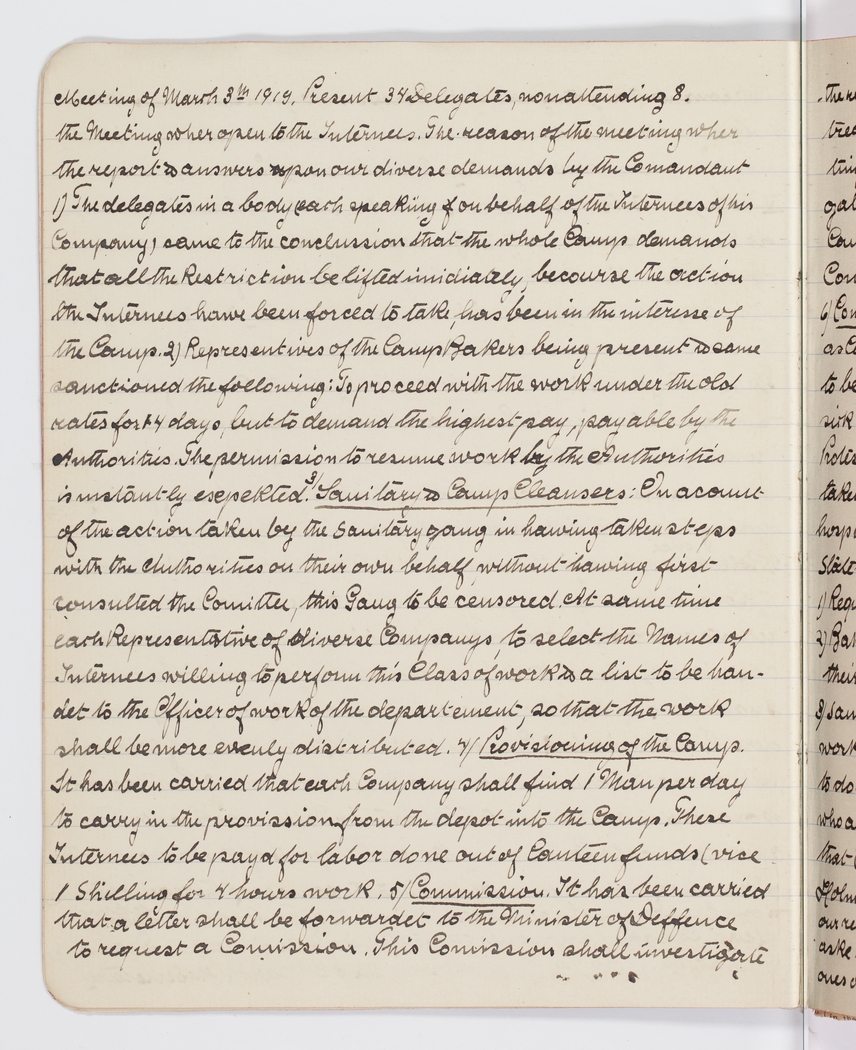 Meeting of March 3th 1919. Present 34 Delegates, nonattending 8.
the Meeting wher open to the Internees. The reason of the meeting wher
the report & answers upon our diverse demands by the Comandant
1) The delegates in a body (each speaking f on behalf of the Internees of his
Company) came to the conclussion that the whole Camp demands
that all the Restriction be lifted imidiately, becourse the action
the Internees have been forced to take, has been in the interesse of
the Camp. 2) Representives of the Camp Bakers being present & same
sanctioned the following: To proceed with the work under the old
rates for 14 days, but to demand the highest pay, payable by the
Authorities. The permission to resume work by the Authorities
is instantly expekted. 3/ Sanitary & Camp Cleansers: On acount
of the action taken by the Sanitary gang in hawing taken steps
with the Authorities on their own behalf without hawing first
consulted the Comittee, this Gang to be censored. At same time
each Representative of diverse Companys, to select the Names of
Internees willing to perform this Class of work & a list to be han-
det to the Officer of work of the departement, so that the work
shall be more evenly distributed. 4/ Provistoning of the Camp.
It has been carried that each Company shall find 1 Man per day
to carry in the provission from the depot into the Camp. These
Internees to be payd for labor done out of Canteen funds (vice
1 Shilling for 4 hours work. 5/ Commission. It has been carried
that a letter shall be forwardet to the Minister of Deffence
to request a Comission. This Comission shall investigate